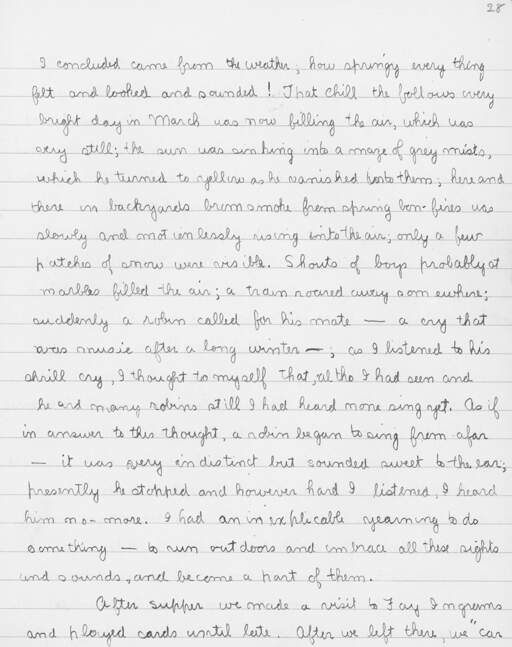 28
I concluded came from the weather; how springy every thing
felt and looked and sounded! That chill the follows every
bright day in March was now filling the air, which was
very still; the sun was sinking into a maze of grey mists,
which he turned to yellow as he vanished into them; here and
there in backyards brown smoke from spring bon-fires was
slowly and motionlessly rising into the air; only a few
patches of snow were visible. Shouts of boys probably at
marbles filled the air; a train roared away somewhere;
suddenly a robin called for his mate — a cry that
was music after a long winter —; as I listened to his
shrill cry, I thought to myself that, altho I had seen and
heard many robins still I had heard none sing yet. As if
in answer to this thought, a robin began to sing from afar
— it was very indistinct but sounded sweet to the ear;
presently he stopped and however hard I listened, I heard
him no-more. I had an inexplicable yearning to do
something — to run outdoors and embrace all these sights
and sounds, and become a part of them.
After supper we made a visit to Fay Ingrams
and played cards until late. After we left there, we "car